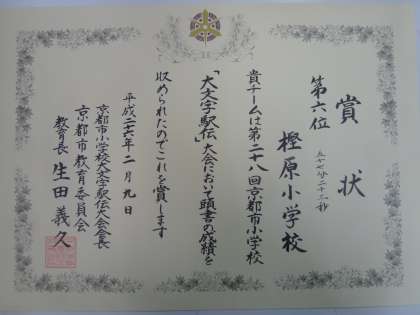 賞状
第六位
五十七分二十三秒
樫原小学校
貴チームは第二十八回京都市小学校
「大文字駅伝」大会において頭書の成績を
収められたのでこれを賞します
平成二十六年二月九日
京都市小学校大文字駅伝大会会長
京都市教育委員会
教育長 生田義久